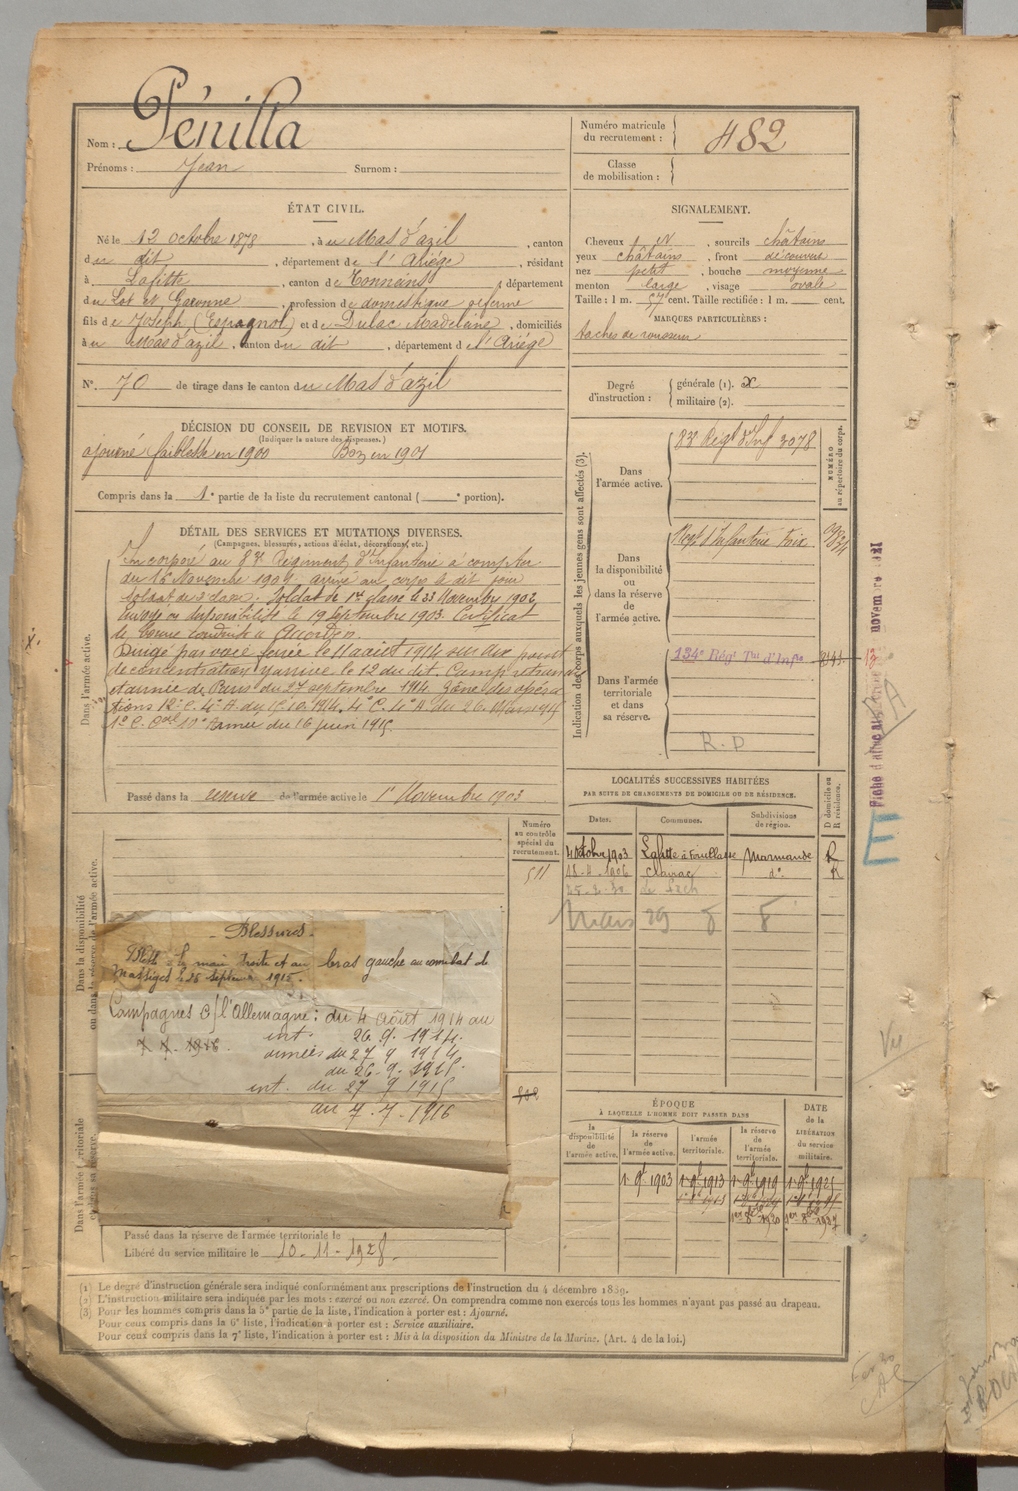 Nom : Pénilla
Prénoms : Jean Surnom :
Numéro matricule du recrutement : 482
Classe de mobilisation :
ÉTAT CIVIL.
Né le 12 octobre 1878, à u Mas d'azil, canton
d u dit, département d e l'Ariège, résidant
à Lafitte, canton d e Tonnans, département
d u Lot et Garonne, profession d e domestique de ferme
fils d e Joseph (Espagnol) et d e Dulac Madeleine, domiciliés
à u Mas d'azil, canton d u dit, département d e l'Ariège
N° 70 de tirage dans le canton d u Mas d'azil
SIGNALEMENT.
Cheveux, sourcils châtains
yeux châtains, front découvert
nez petit, bouche moyenne
menton large, visage ovale
Taille : 1 m. 57 cent. Taille rectifiée : 1 m. cent.
MARQUES PARTICULIÈRES :
taches de rousseur
Degré d'instruction : générale (1). x
militaire (2).
DÉCISION DU CONSEIL DE REVISION ET MOTIFS.
(Indiquer la nature des dispenses.)
ajourné faiblesse en 1900 Bon en 1901
Compris dans la 1e partie de la liste du recrutement cantonal ( e portion).
DÉTAIL DES SERVICES ET MUTATIONS DIVERSES.
(Campagnes, blessures, actions d'éclat, décorations, etc.)
Dans l'armée active.
Incorporé au 83e Régiment d'Infanterie à compter
du 16 Novembre 1901. arrivé au corps le dit jour
soldat de 2e classe. Soldat de 1re classe le 23 Novembre 1902
envoyé en disponibilité le 19 Septembre 1903. Certificat
de bonne conduite accordé.
Dirigé par voie ferrée le 11 août 1914 sur un point
de concentration y arrive le 12 du dit. Camp retranché
et armée de Paris du 27 septembre 1914. Gare des opéra
tions
1e C. Cal 10e Armée du 16 juin 1915.
Passé dans la réserve de l'armée active le 1er Novembre 1903
Indication des corps auxquels les jeunes gens sont affectés (3).
NUMÉRO au répertoire du corps.
Dans l'armée active. 83e Régt d'Inf 3078
Dans la disponibilité ou dans la réserve de l'armée active. Régt d'Infanterie
Dans l'armée territoriale et dans sa réserve. 134e Régt Tal d'Infie
R. D
LOCALITÉS SUCCESSIVES HABITÉES
PAR SUITE DE CHANGEMENTS DE DOMICILE OU DE RÉSIDENCE.
Dates. Communes. Subdivisions de région. D domicile ou R résidence.
4 octobre 1903 Lafitte Marmande R
18-4-1906 Clairac d° R
25-2-30
Mars 29
Numéro au contrôle spécial du recrutement.
511
Dans la disponibilité ou dans la réserve de l'armée active.
- Blessures -
Blessé à la main droite et au bras gauche au combat de
Massiges le 25 septembre 1915.
Campagnes c/ l'Allemagne : du 4 Août 1914 au
int. 26.9.1914.
armées du 27 9 1914
au 26-9-1915.
int. du 27 9 1915
au 7-7-1916
Dans l'armée territoriale et dans sa réserve.
Passé dans la réserve de l'armée territoriale le
Libéré du service militaire le 10-11-1928.
ÉPOQUE
À LAQUELLE L'HOMME DOIT PASSER DANS
la disponibilité de l'armée active. la réserve de l'armée active. l'armée territoriale. la réserve de l'armée territoriale. DATE de la LIBÉRATION du service militaire.
1er 9bre 1903 1er 9bre 1913 1er 9bre 1919 1er 9bre 1925
(1) Le degré d'instruction générale sera indiqué conformément aux prescriptions de l'instruction du 4 décembre 1889.
(2) L'instruction militaire sera indiquée par les mots : exercé ou non exercé. On comprendra comme non exercés tous les hommes n'ayant pas passé au drapeau.
(3) Pour les hommes compris dans la 5e partie de la liste, l'indication à porter est : Ajourné.
Pour ceux compris dans la 6e liste, l'indication à porter est : Service auxiliaire.
Pour ceux compris dans la 7e liste, l'indication à porter est : Mis à la disposition du Ministre de la Marine. (Art. 4 de la loi.)